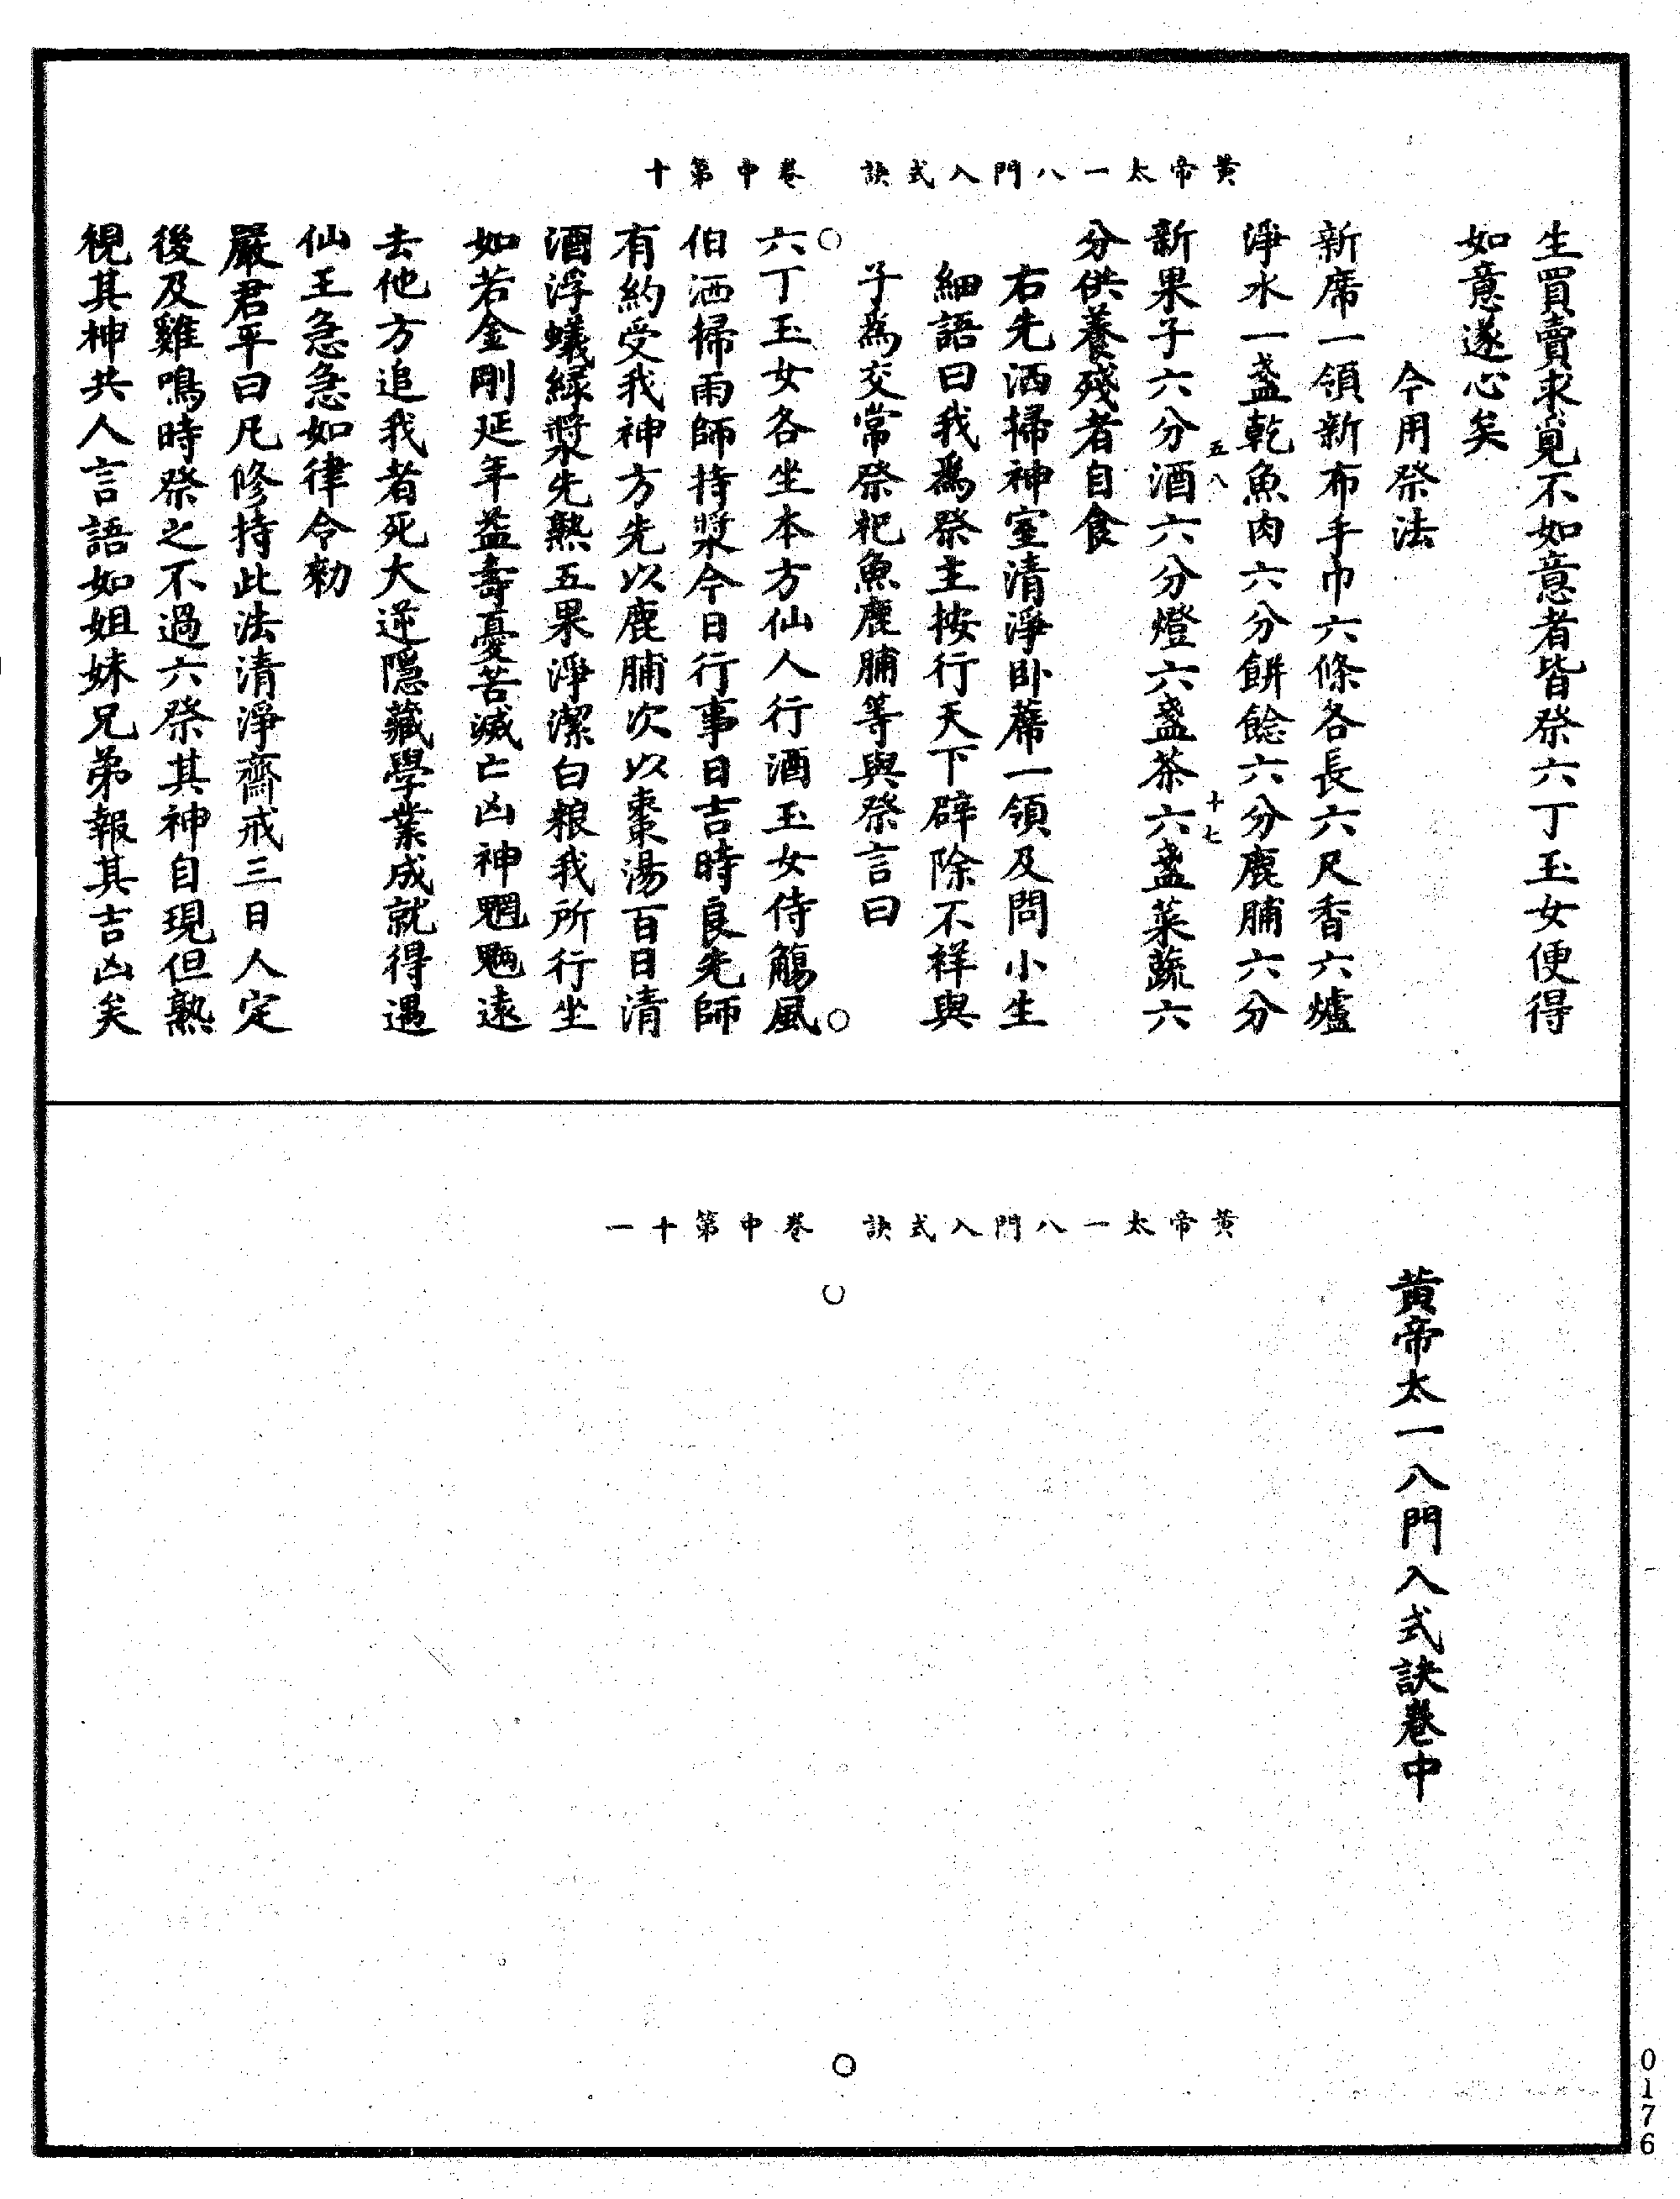 黃帝太一八門入式訣　卷中第十
生買賣求覓不如意者皆祭六丁玉女便得
如意遂心矣
今用祭法
新席一領新布手巾六條各長六尺香六爐
淨水一盞乾魚肉六分餅餤六分鹿脯六分
五八
十七
新果子六分酒六分燈六盞茶六盞菜蔬六
分供養殘者自食
右先洒掃神室清淨臥蓆一領及問小生
細語曰我為祭主按行天下辟除不祥與
子為交常祭祀魚鹿脯等與祭言曰
六丁玉女各坐本方仙人行酒玉女侍觴風
伯洒掃雨師持漿今日行事日吉時良先師
有約受我神方先以鹿脯次以棗湯百日清
酒浮蟻綠漿先熟五果淨潔白粮我所行坐
如若金剛延年益壽憂苦滅亡凶神魍魎遠
去他方追我者死大逆隱藏學業成就得遇
仙王急急如律令勑
嚴君平曰凡修持此法清淨齋戒三日人定
後及雞鳴時祭之不過六祭其神自現但熟
視其神共人言語如姐妹兄弟報其吉凶矣
黃帝太一八門入式訣　卷中第十一
黃帝太一八門入式訣卷中
0176